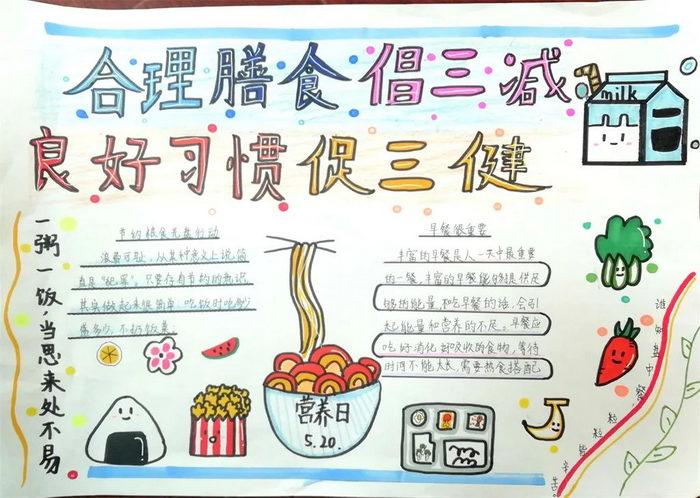 合理膳食倡三减
milk
良好习惯促三健
一粥一饭,当思来处不易
节约粮食光盘行动
浪费可耻,从某种意义上说,简
直是"犯罪"。只要存有节约的意识,
其实做起来很简单:吃饭时吃多少
盛多少,不扔饭菜。
早餐很重要
丰富的早餐是人一天中最重要
的一餐,丰富的早餐能够提供足
够的能量和吃早餐的话,会引
起能量和营养的不足。早餐应
吃好消化好吸收的食物,等待
时间不能太长,需要热食搭配
营养日
5.20.
谁知盘中餐,粒粒皆辛苦